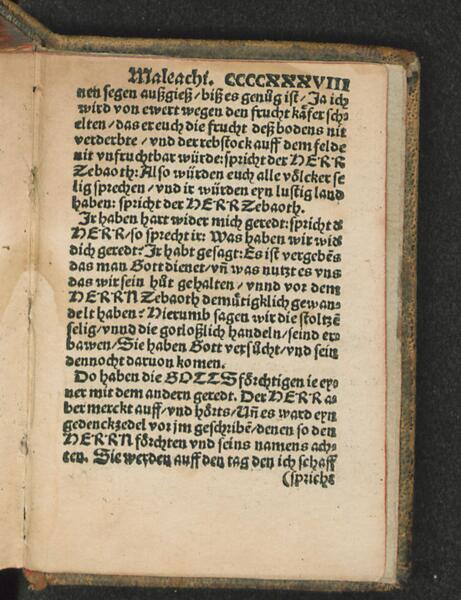 Maleachi. CCCCXXXVIII
nen segen außgieß/biß es genůg ist/Ja ich
wird von ewert wegen den frucht käfer sch⸗
elten/das er euch die frucht deß bodens nit
verderbte/vnd der rebstock auff dem felde
nit vnfruchtbar würde: spricht der HERR
Zebaoth: Also würden euch alle völcker se
lig sprechen/vnd ir würden eyn lustig land
haben: spricht der HERR Zebaoth.
Ir haben hart wider mich geredt: spricht d
HERR/so sprecht ir: Was haben wir wid
dich geredt? Ir habt gesagt: Es ist vergebẽs
das man Gott dienet/vñ was nutzt es vns
das wir sein hůt gehalten/vnnd vor dem
HERRN Zebaoth demütigklich gewan⸗
delt haben? Hierumb sagen wir die stoltzẽ
selig/vnnd die gotloßlich handeln/seind er⸗
bawen/Sie haben Gott versůcht/vnd sein
dennocht daruon komen.
Do haben die GOTTS förchtigen ie ey⸗
ner mit dem andern geredt. Der HERR a⸗
ber merckt auff/vnd hörts/Uñ es ward eyn
gedenckzedel vor jm geschribẽ/denen so den
HERRN förchten vnd seins namens ach⸗
ten. Sie werden auff den tag den ich schaff
(spricht